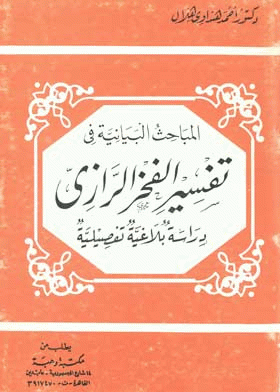 دكتور أحمد هنداوى هلال
المباحث البيانية فى
تفسير الفخر الرازى
دراسة بلاغية تفصيلية
يطلب من
مكتبة وهبة
١٤ شارع الجمهورية - عابدين
القاهرة - ت: ٣٩١٧٤٧٠